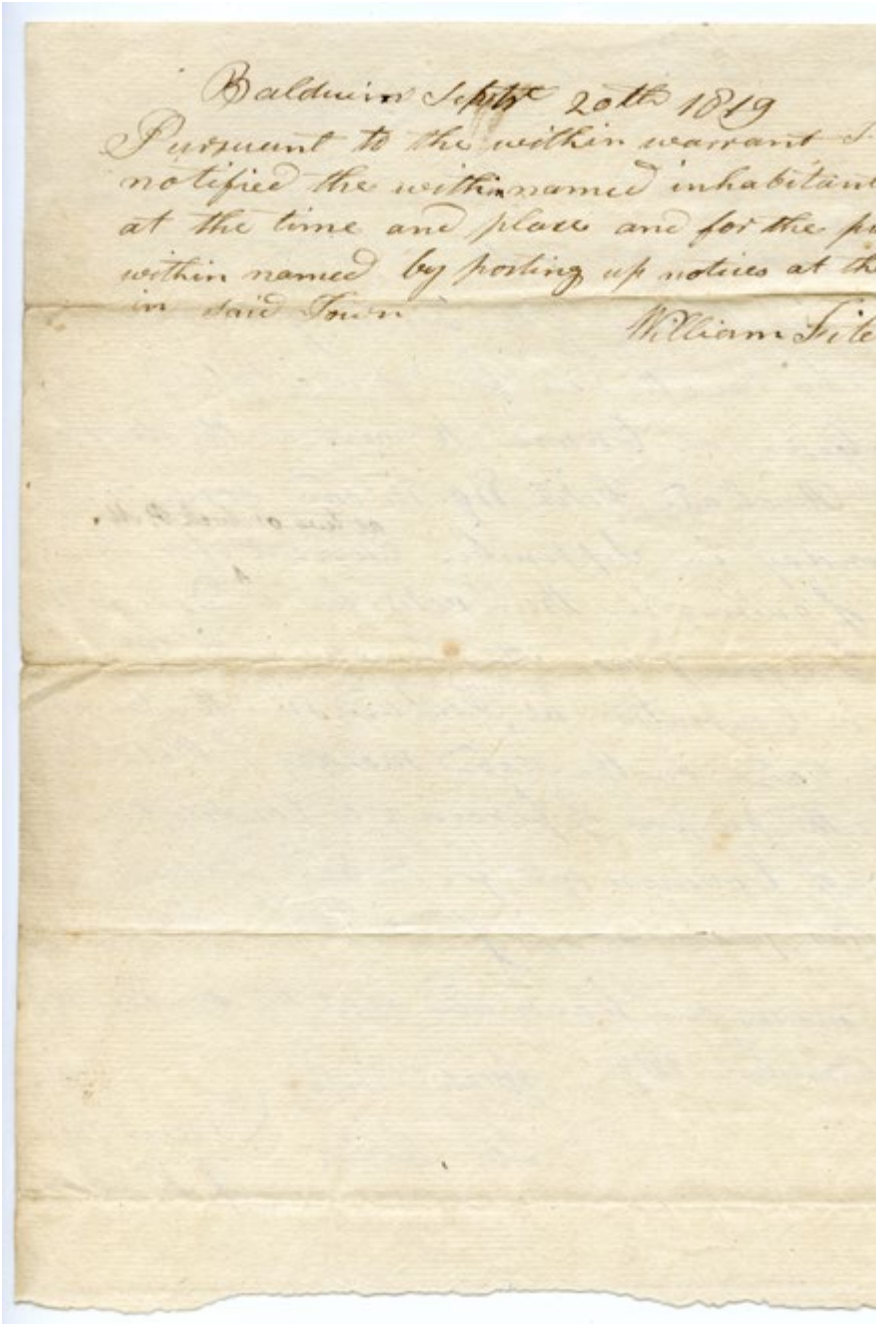 Baldwin Septr 20th 1819
Pursuant to the within warrant I
notified the within named inhabitant
at the time and place and for the pu
within named by posting up notices at th
in said Town
William Fite